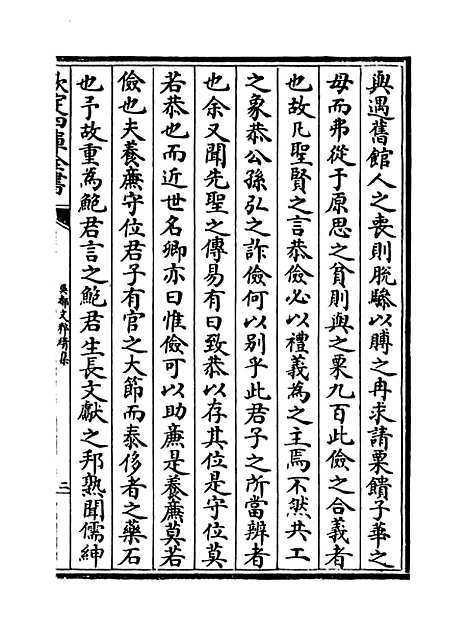 與遇舊館人之喪則脫驂以賻之冉求請粟饋子華之
母而弗從于原思之貧則與之粟九百此儉之合義者
也故凡聖賢之言恭儉必以禮義為之主焉不然共工
之象恭公孫弘之詐儉何以別乎此君子之所當辨者
也余又聞先聖之傳易有曰致恭以存其位是守位莫
若恭也而近世名卿亦曰惟儉可以助亷是養亷莫若
儉也夫養亷守位君子有官之大節而泰侈者之藥石
也予故重為鮑君言之鮑君生長文獻之邦熟聞儒紳
欽定四庫全書
吳都文粹續集
三